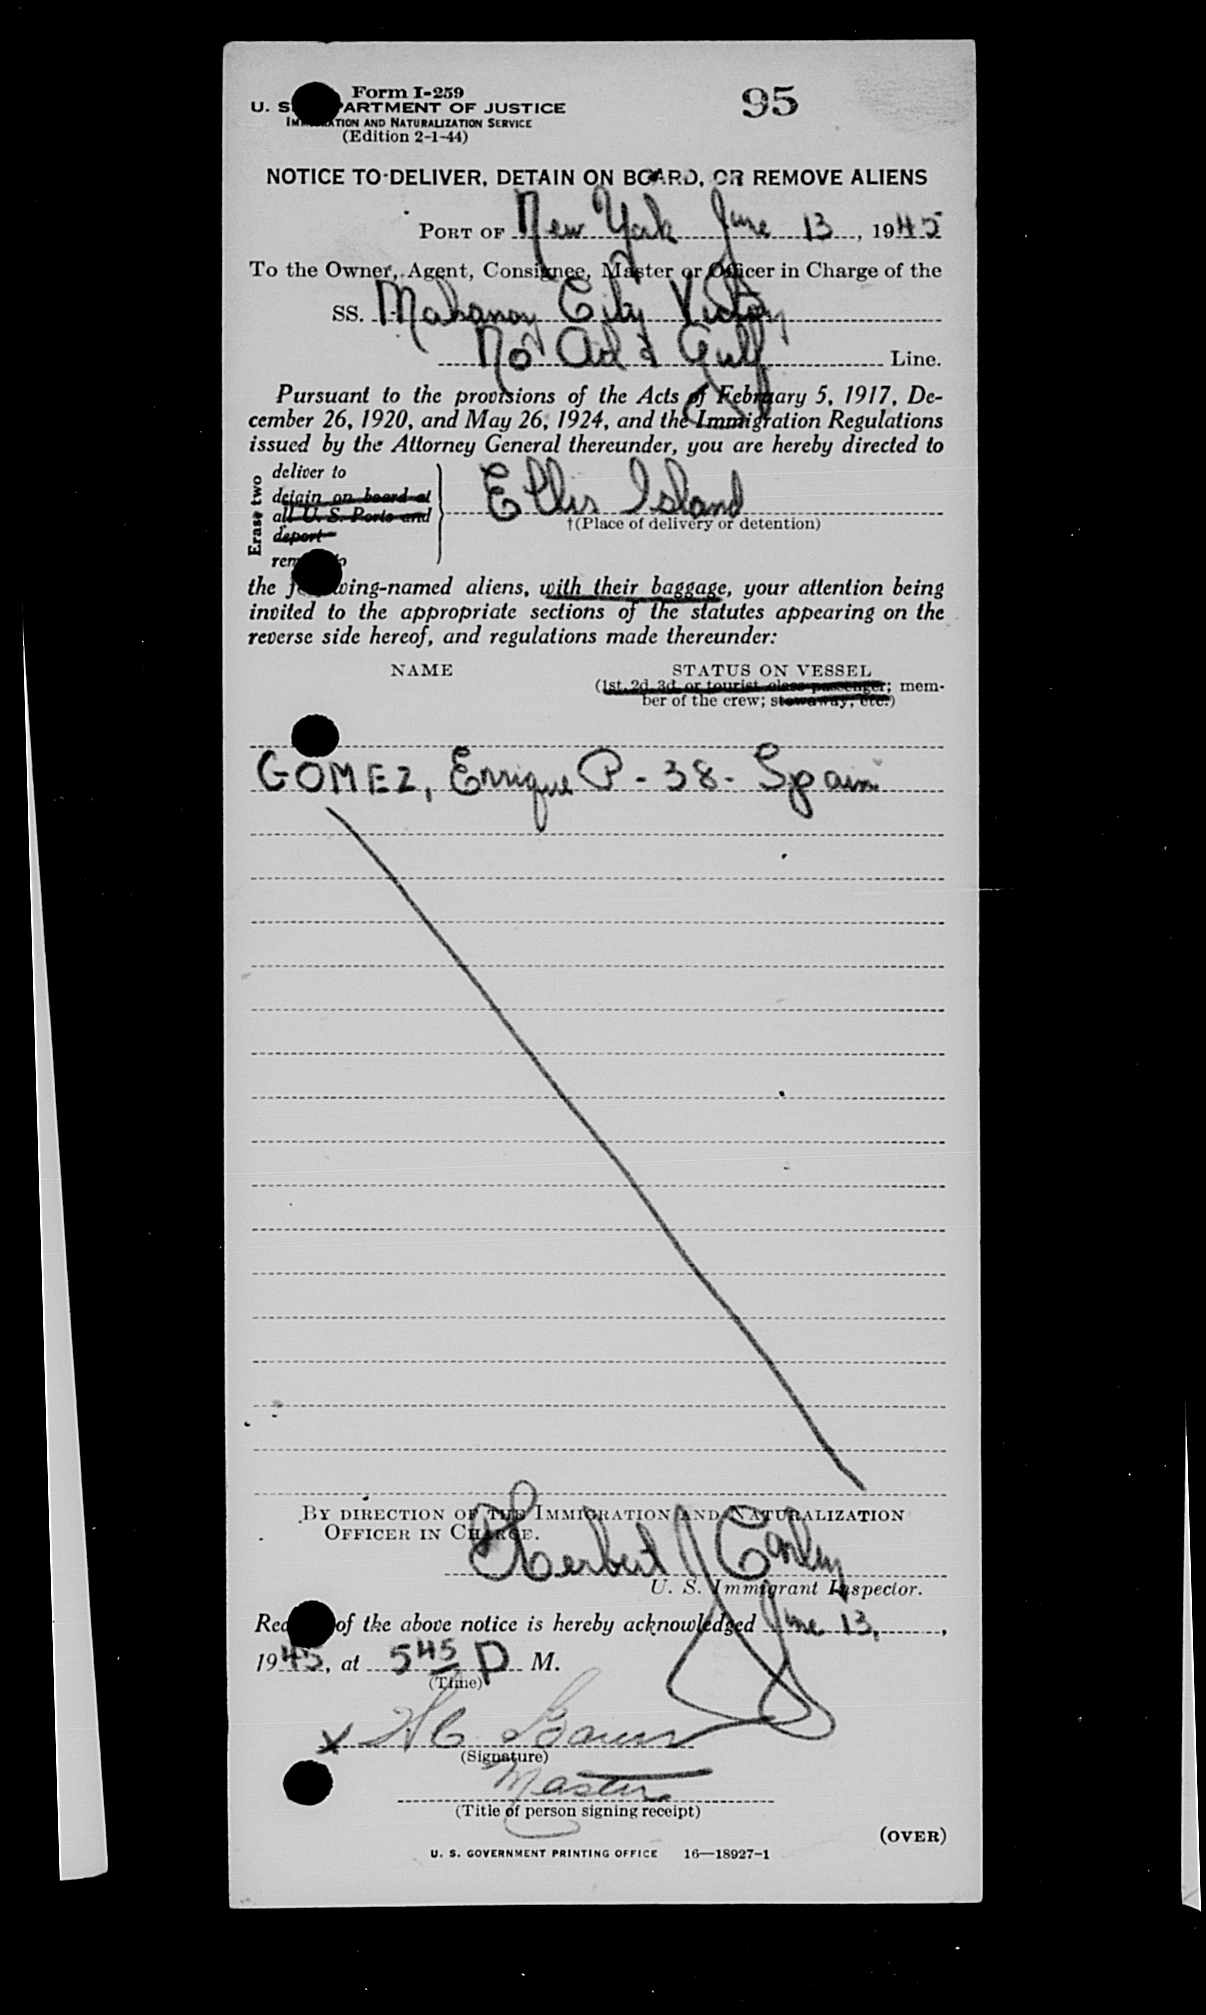 Form I-259
95
U. S. DEPARTMENT OF JUSTICE
IMMIGRATION AND NATURALIZATION SERVICE
(Edition 2-1-44)
NOTICE TO DELIVER, DETAIN ON BOARD, OR REMOVE ALIENS
PORT OF New York June 13, 1945
To the Owner, Agent, Consignee, Master or Officer in Charge of the
SS. Mahanoy City Victory
No Atl & Gulf Line.
Pursuant to the provisions of the Acts of February 5, 1917, De-
cember 26, 1920, and May 26, 1924, and the Immigration Regulations
issued by the Attorney General thereunder, you are hereby directed to
Erase two
deliver to
detain on board at
all U. S. Ports and
deport
remove to
Ellis Island
†(Place of delivery or detention)
the following-named aliens, with their baggage, your attention being
invited to the appropriate sections of the statutes appearing on the
reverse side hereof, and regulations made thereunder:
NAME STATUS ON VESSEL
(1st, 2d, 3d, or tourist class passenger; mem-
ber of the crew; stowaway, etc.)
GOMEZ, Enrique P - 38 - Spain
BY DIRECTION OF THE IMMIGRATION AND NATURALIZATION
OFFICER IN CHARGE.
Herbert J
U. S. Immigrant Inspector.
Receipt of the above notice is hereby acknowledged June 13,
1945, at 545 P M.
(Time)
X
(Signature)
Master
(Title of person signing receipt)
(OVER)
U. S. GOVERNMENT PRINTING OFFICE 16—18927-1